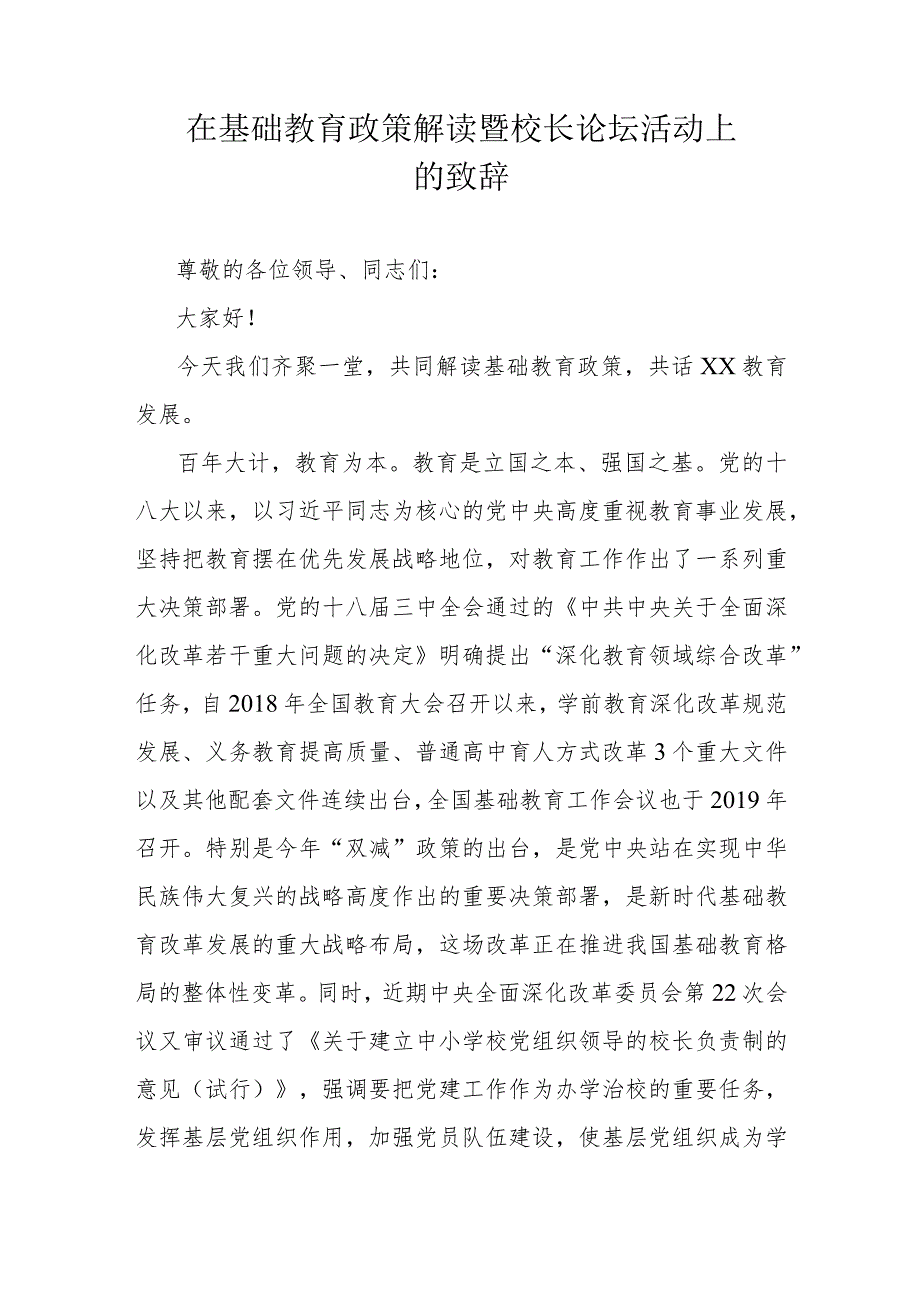 在基础教育政策解读暨校长论坛活动上
的致辞
尊敬的各位领导、同志们：
大家好！
今天我们齐聚一堂，共同解读基础教育政策，共话XX教育
发展。
百年大计，教育为本。教育是立国之本、强国之基。党的十
八大以来，以习近平同志为核心的党中央高度重视教育事业发展，
坚持把教育摆在优先发展战略地位，对教育工作作出了一系列重
大决策部署。党的十八届三中全会通过的《中共中央关于全面深
化改革若干重大问题的决定》明确提出“深化教育领域综合改革”
任务，自2018年全国教育大会召开以来，学前教育深化改革规范
发展、义务教育提高质量、普通高中育人方式改革3个重大文件
以及其他配套文件连续出台，全国基础教育工作会议也于2019年
召开。特别是今年“双减”政策的出台，是党中央站在实现中华
民族伟大复兴的战略高度作出的重要决策部署，是新时代基础教
育改革发展的重大战略布局，这场改革正在推进我国基础教育格
局的整体性变革。同时，近期中央全面深化改革委员会第22次会
议又审议通过了《关于建立中小学校党组织领导的校长负责制的
意见（试行）》，强调要把党建工作作为办学治校的重要任务，
发挥基层党组织作用，加强党员队伍建设，使基层党组织成为学